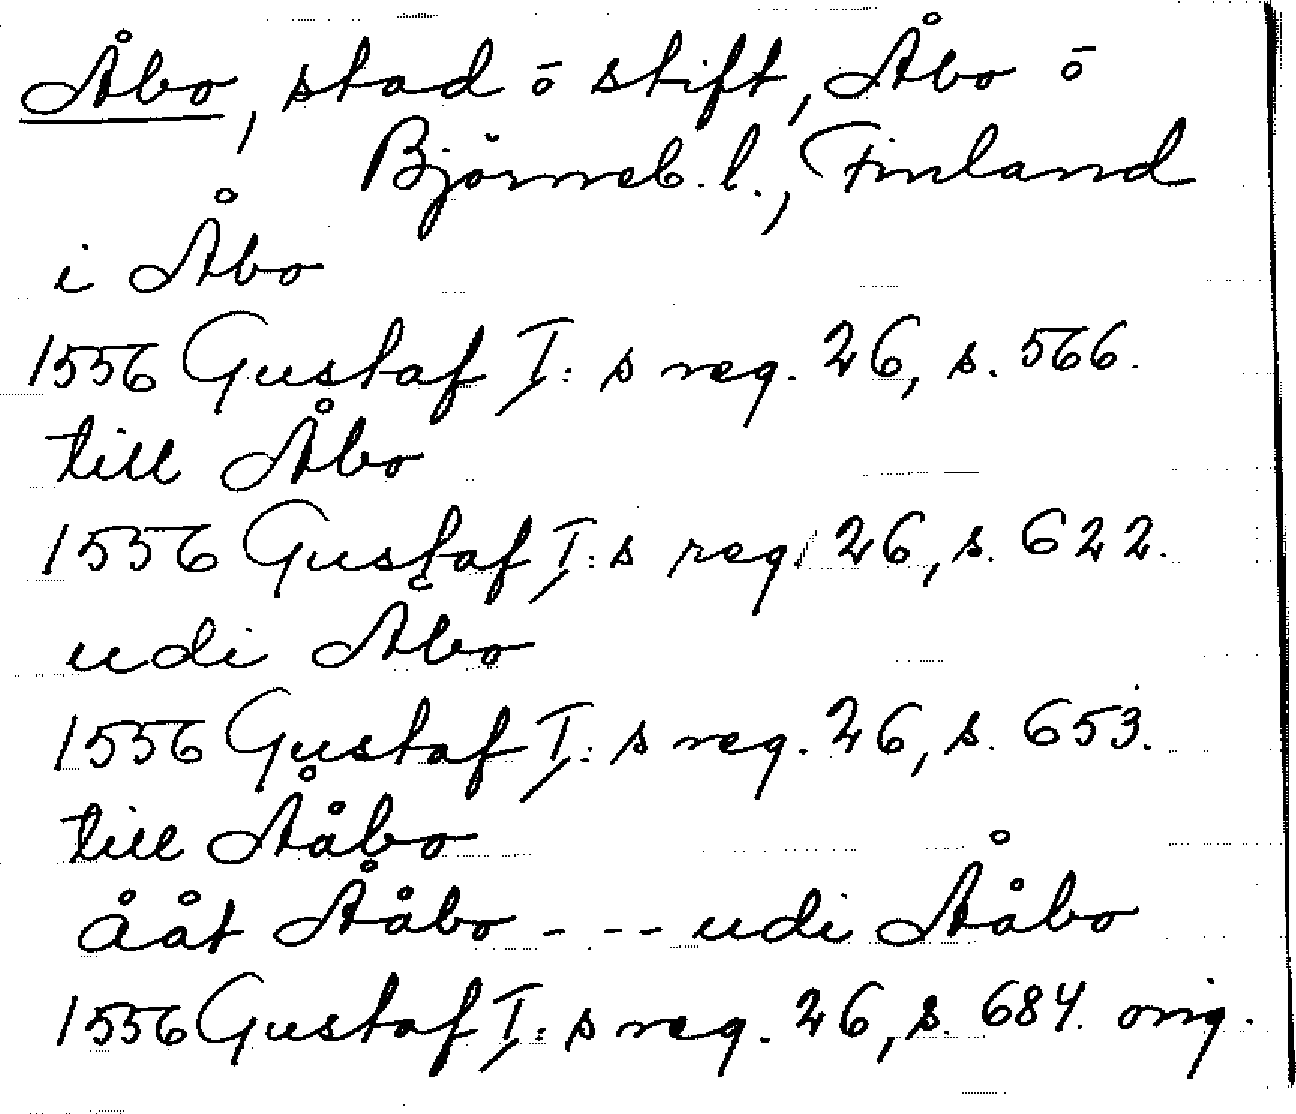 Åbo, stad ō stift, Åbo ō
Björneb. l., Finland
i Åbo
1556 Gustaf I: s reg. 26, s. 566.
till Åbo
1556 Gustaf I: s reg. 26, s. 622.
udi Åbo
1556 Gustaf I: s reg. 26, s. 653.
till Ååbo
ååt Ååbo - - - udi Ååbo
1556 Gustaf I: s reg. 26, s. 684. orig.